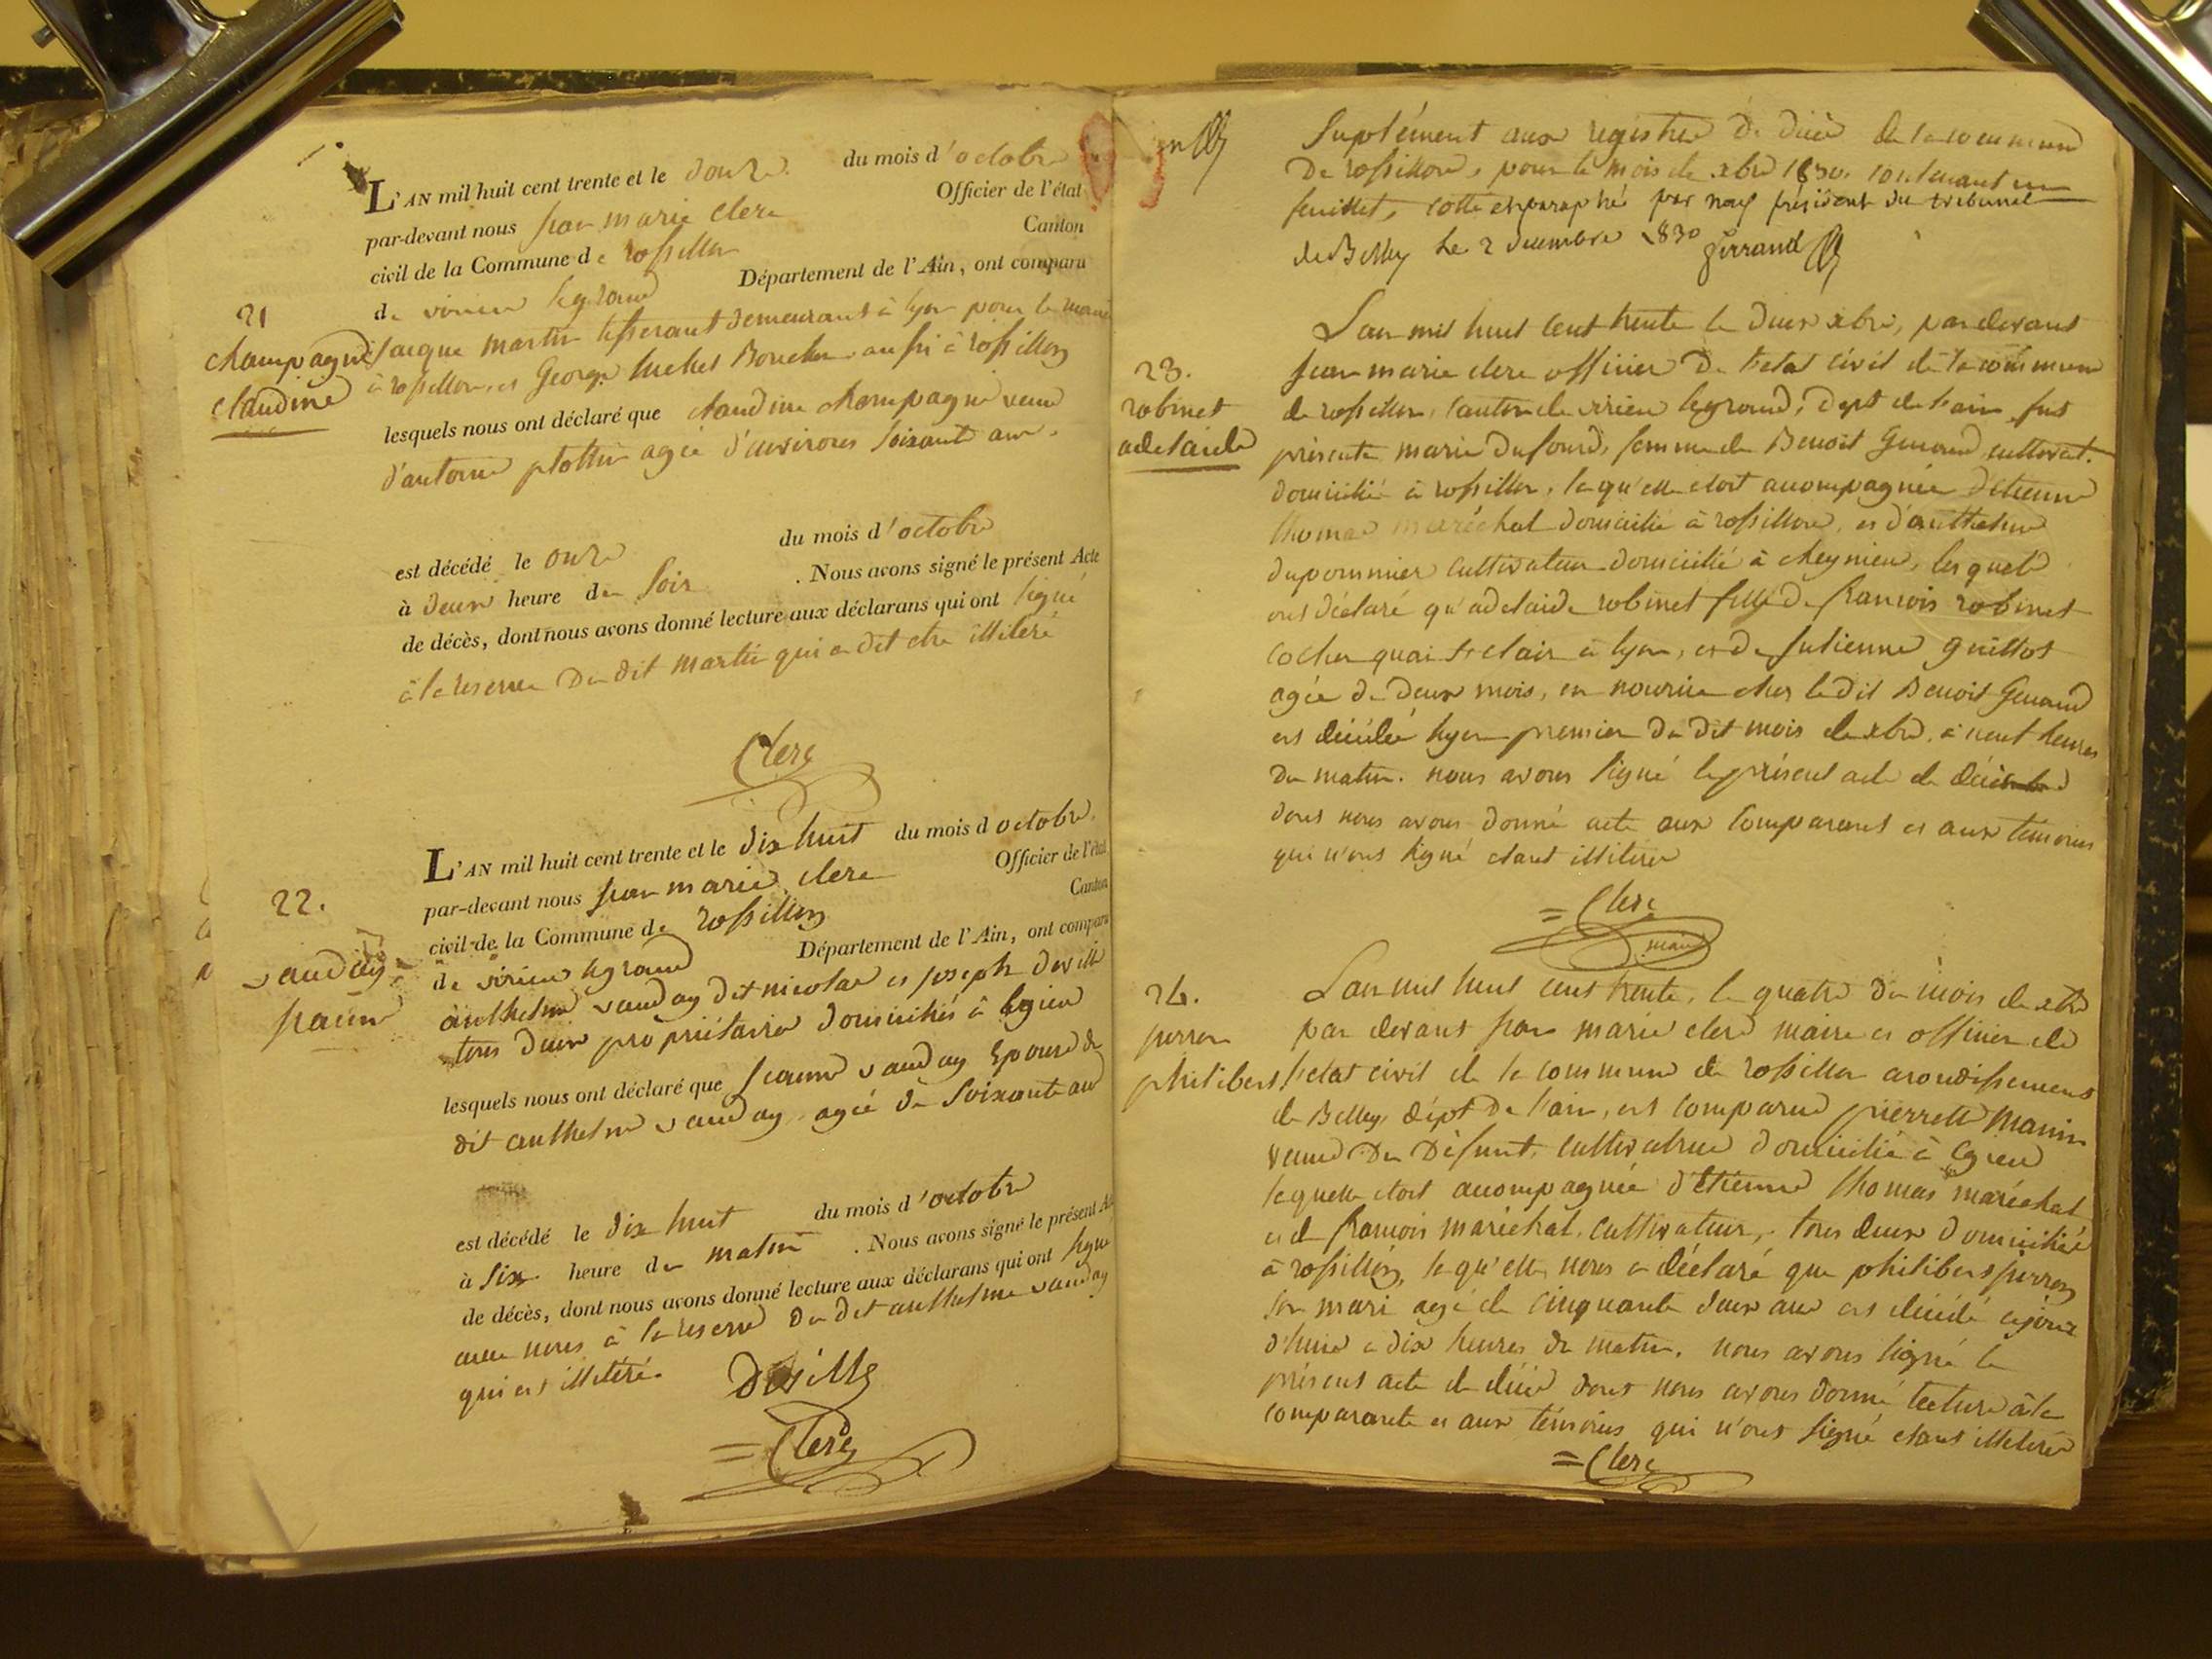 L'AN mil huit cent trente et le douze du mois d'octobre
par-devant nous jean marie clerc Officier de l'état
civil de la Commune de rossillon Canton
de virieu legrand Département de l'Ain, ont comparu
21
champagne
claudine
jacque martin demeurant à lyon pour le
à rossillon, et George michel Boucher aussi à rossillon
lesquels nous ont déclaré que claudine champagne veuve
d'antoine agée d'environs soixante ans.
est décédé le onze du mois d'octobre
à deux heure du soir . Nous avons signé le présent Acte
de décès, dont nous avons donné lecture aux déclarans qui ont signé
à la reserve du dit martin qui a dit etre illiteré
Clerc
L'AN mil huit cent trente et le dix huit du mois d octobre
par-devant nous jean marie clerc Officier de l'état
civil de la Commune de rossillon Canton
de virieu legrand Département de l'Ain, ont comparu
22.
vauday
jeanne
anthelme vauday dit nicolas et joseph deville
tous deux propriétaires domiciliés à
lesquels nous ont déclaré que jeanne vauday Epouse du
dit anthelme vauday, agée de soixante ans
est décédé le dix huit du mois d'octobre
à six heure du matin . Nous avons signé le présent Acte
de décès, dont nous avons donné lecture aux déclarans qui ont signé
avec nous à la reserve du dit anthelme vauday
qui est illitéré.
Deville
= Clerc
Suplément aux registre de décès de la commune
De rossillon, pour le mois de xbre 1830. contenant un
feuillet, cotté et paraphé par nous président du tribunal
de Belley le 2 decembre 1830 Girrand
L'an mil huit cent trente le deux xbre, par devant
23.
robinet
adelaide
jean marie clerc officier de l'etat civil de la commune
de rossillon, canton de virieu legrand, dept de l'ain fut
présente marie dufour, femme de Benoit cultivat.
domicilié à rossillon, laqu'elle etoit accompagnée d'etienne
thomas maréchal domicilié à rossillon, et d'anthelme
dupommier cultivateur domicilié à cheynieu, lesquels
ont déclaré qu'adelaide robinet fille de francois robinet
cocher quai st clair à lyon, et de julienne guillot
agée de deux mois, en nourice chez le dit Benoit
est décédée hyer premier du dit mois de xbre, à neuf heures
du matin. nous avons signé le présent acte de décès
dont nous avons donné acte aux comparants et aux témoins
qui n'ont signé etant illiteré
= Clerc
maire
24.
perron
philibert
L'an mil huit cent trente, le quatre du mois de xbre
par devant jean marie clerc maire et officier de
l'etat civil de la commune de rossillon arondissement
de Belley, dépt de l'ain, est comparue pierrette Manin
veuve du Défunt, cultivatrice domiciliée à
laquelle etoit accompagnée d'Etienne thomas maréchal
et de francois maréchal, cultivateur, tous deux domiciliés
à rossillon, laqu'elle nous a déclaré que philibert perron
son mari agé de cinquante deux ans est décédé aujour
d'huis à dix heures du matin. nous avons signé le
présent acte de décès dont nous avons donné lecture à la
comparante et aux témoins qui n'ont signé etant illiteré
= Clerc